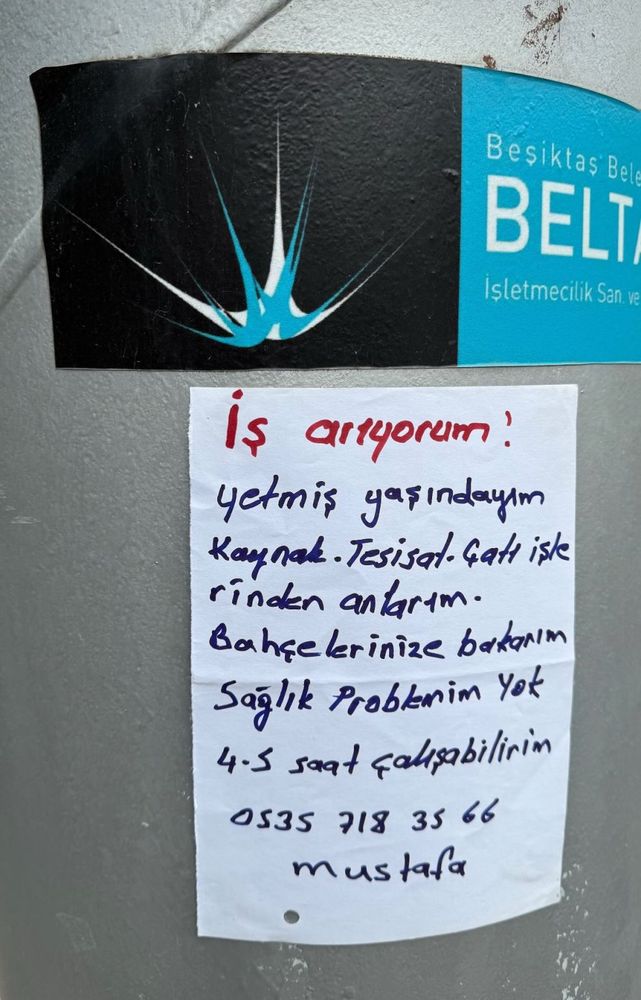 Beşiktaş Bele
BELTA
İşletmecilik San. ve
İş arıyorum!
Yetmiş yaşındayım
Kaynak. Tesisat. Çatı işle
rinden anlarım.
Bahçelerinize bakarım
Sağlık Problemim Yok
4-5 saat çalışabilirim
0535 718 35 66
mustafa